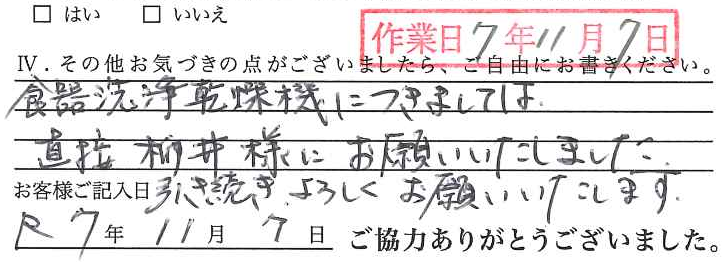 □ はい □ いいえ
作業日 7年11月7日
Ⅳ．その他お気づきの点がございましたら、ご自由にお書きください。
食器洗浄乾燥機につきましては、
直接 柳井様に お願いいたしました。
引き続き よろしく お願いいたします。
お客様ご記入日
R7年 11月 7日 ご協力ありがとうございました。